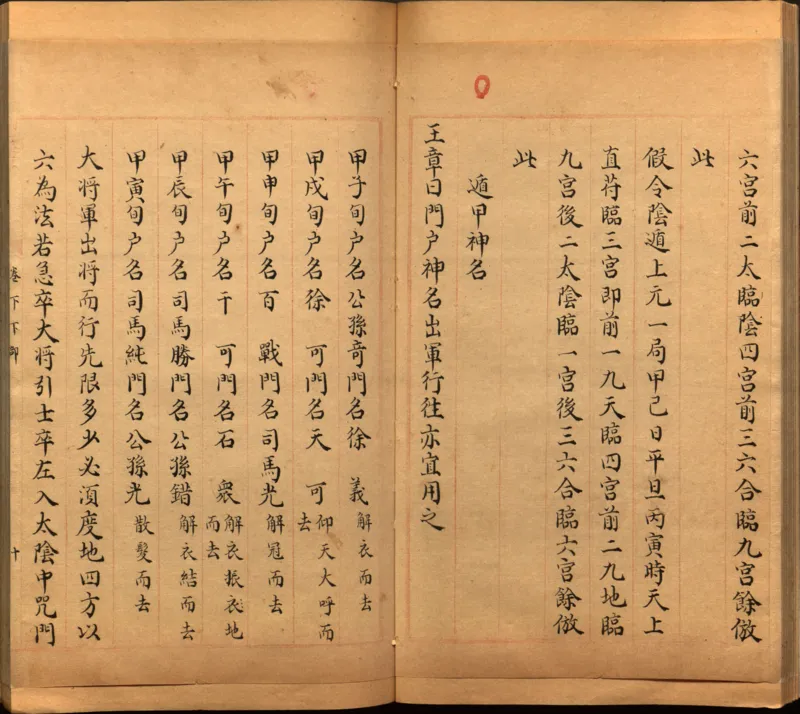 六宫前二太臨陰四宫前三六合臨九宫餘倣
此
假令陰遁上元一局甲己日平旦丙寅時天上
直苻臨三宫即前一九天臨四宫前二九地臨
九宫後二太陰臨一宫後三六合臨六宫餘倣
此
遁甲神名
王章曰門户神名出軍行往亦宜用之
甲子旬户名公孫竒門名徐 義解衣而去
甲戌旬户名徐 可門名天 可仰天大呼而去
甲申旬户名百 戰門名司馬光解冠而去
甲午旬户名千 可門名石 衆解衣振衣地而去
甲辰旬户名司馬勝門名公孫錯解衣結而去
甲寅旬户名司馬純門名公孫光散髮而去
大将軍出将而行先限多少必湏度地四方以
六為法若急卒大将引士卒左入太陰中咒門
卷下下
十